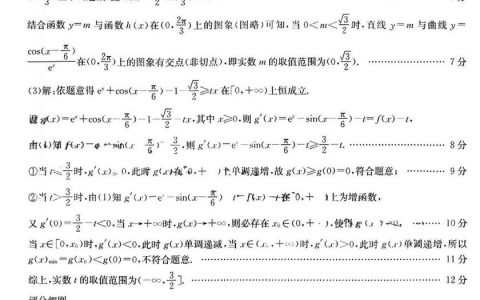 结合函数 y=m 与函数 h(x)在(0,2π/3)上的图象(图略)可知,当 0<m<√3/2时,直线 y=m 与曲线 y=
cos(x-π/6)/eˣ在(0,2π/3)上的图象有交点(非切点),即实数 m 的取值范围为(0,√3/2). 7 分
(3)解:依题意得 eˣ+cos(x-π/6)-1-√3/2≥tx 在[0,+∞)上恒成立.
设 g(x)=eˣ+cos(x-π/6)-1-√3/2-tx,其中 x≥0,则 g′(x)=eˣ-sin(x-π/6)-t=f(x)-t,
由(1)知 f(x)= eˣ-sin(x-π/6)≥3/2,则 g′(x)=eˣ-sin(x-π/6)-t≥3/2-t. 8 分
①当 t≤3/2时,g′(x)≥0,此时 g(x)在[0,+ )上单调递增,故 g(x)≥g(0)=0,符合题意; 9 分
②当 t>3/2时,由(1)知 g′(x)=eˣ-sin(x-π/6)-t=f(x)-t在[0,+ )上为增函数,
又 g′(0)=3/2-t<0,当 x→+∞时,g(x)→+∞,则必存在 x₀∈(0,+ ),使得 10 分
当 x∈[0,x₀)时,g′(x)<0,此时 g(x)单调递减,当 x∈(x₀,+∞)时,g′(x)>0,此时 g(x)单调递增,所以
g(x)min=g(x₀)<g(0)=0,不符合题意. 11 分
综上,实数 t 的取值范围为(-∞,3/2]. 12 分